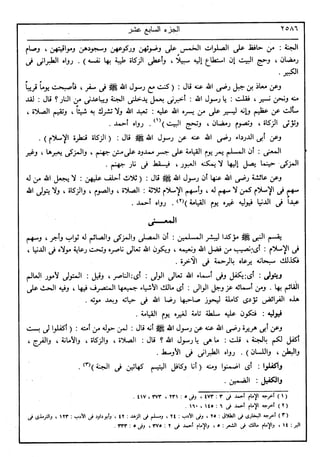 ٢٥٨٦ الجزء السابع عشر
الجنة : من حافظ على الصلوات الخمس على وضوئهن وركوعهن وسجودهن ومواقيتهن ، وصام
رمضان ، وحج البيت إن استطاع إليه سبيلاً ، وأعطى الزكاة طيبة بها نفسه ) . رواه الطبراني في
الكبير .
وعن معاذ بن جبل رضى الله عنه قال : ( كنت مع رسول الله ﷺ في سفر ، فأصبحت يوماً قريباً
منه ونحن نسير ، فقلت : يا رسول الله : أخبرنى بعمل يدخلنى الجنة ويباعدنى من النار ؟ قال : لقد
سألت عن عظيم وإنه ليسير على من يسره الله عليه : تعبد الله ولا تشرك به شيئاً ، وتقيم الصلاة ،
وتؤتى الزكاة ، وتصوم رمضان ، وتحج البيت )(١) . رواه أحمد .
وعن أبى الدرداء رضى الله عنه عن رسول الله ﷺ قال : ( الزكاة قنطرة الإسلام ) .
المعنى : أن المسلم يمر يوم القيامة على جسر ممدود على متن جهنم ، والمزكى يعبرها ، وغير
المزكى حين يصل إليها لا يمكنه العبور ، فيسقط في نار جهنم .
وعن عائشة رضى الله عنها أن رسول الله ﷺ قال : ( ثلاث أحلف عليهن : لا يجعل الله من له
سهم في الإسلام كمن لا سهم له ، وأسهم الإسلام ثلاثة : الصلاة ، والصوم ، والزكاة ، ولا يتولى الله
عبداً في الدنيا فيوليه غيره يوم القيامة )(٢) . رواه أحمد .
المعـــنى
يقسم النبى ﷺ مؤكدا ليبشر المؤمنين : أن المصلى والمزكى والصائم له ثواب وأجر ، وسهم
في الإسلام : أى نصيب من فضل الله ونعيمه ، ويكون الله تعالى ناصره وتحت رعاية مولاه في الدنيا ،
فكذلك سبحانه يرعاه بالرحمة في الآخرة .
ويتولى : أى: يكفل وفى أسماء الله تعالى الولى : أى: الناصر ، وقيل : المتولى لأمور العالم
القائم بها . ومن أسمائه عز وجل الوالى : أى مالك الأشياء جميعها المتصرف فيها ، وفيه الحث على
هذه الفرائض تؤدى كاملة ليحوز صاحبها رضا الله في حياته وبعد موته .
فيوليه : فيكون عليه سلطة تامة لغيره يوم القيامة .
وعن أبى هريرة رضى الله عنه عن رسول الله ﷺ أنه قال : لمن حوله من أمته : ( أكفلوا لى بست
أكفل لكم بالجنة ، قلت : ما هى يا رسول الله ؟ قال : الصلاة ، والزكاة ، والأمانة ، والفرج ،
والبطن ، واللسان ) . رواه الطبراني في الأوسط .
واكفلوا : أى اضمنوا ومنه ( أنا وكافل اليتيم كهاتين في الجنة )(٣) .
والكفيل : الضمين .
(١) أخرجه الإمام أحمد فى ٣ : ٤٧٣ ، وفى ٥ : ٢٣١ ، ٣٧٣ ، ٤١٧ .
(٢) أخرجه الإمام أحمد فى ٦ : ١٤٥ ، ١٦٠ .
(٣) أخرجه البخارى فى الطلاق : ٢٥ ، وفى الأدب : ٢٤ ، ومسلم فى الزهد : ٤٢ ، وأبو داود فى الأدب : ١٢٣ ، والترمذى فى
البر : ١٤ ، والإمام مالك فى الشعر : ٥ ، والإمام أحمد فى ٢ : ٣٧٥ ، وفى ٥ : ٣٣٣ .